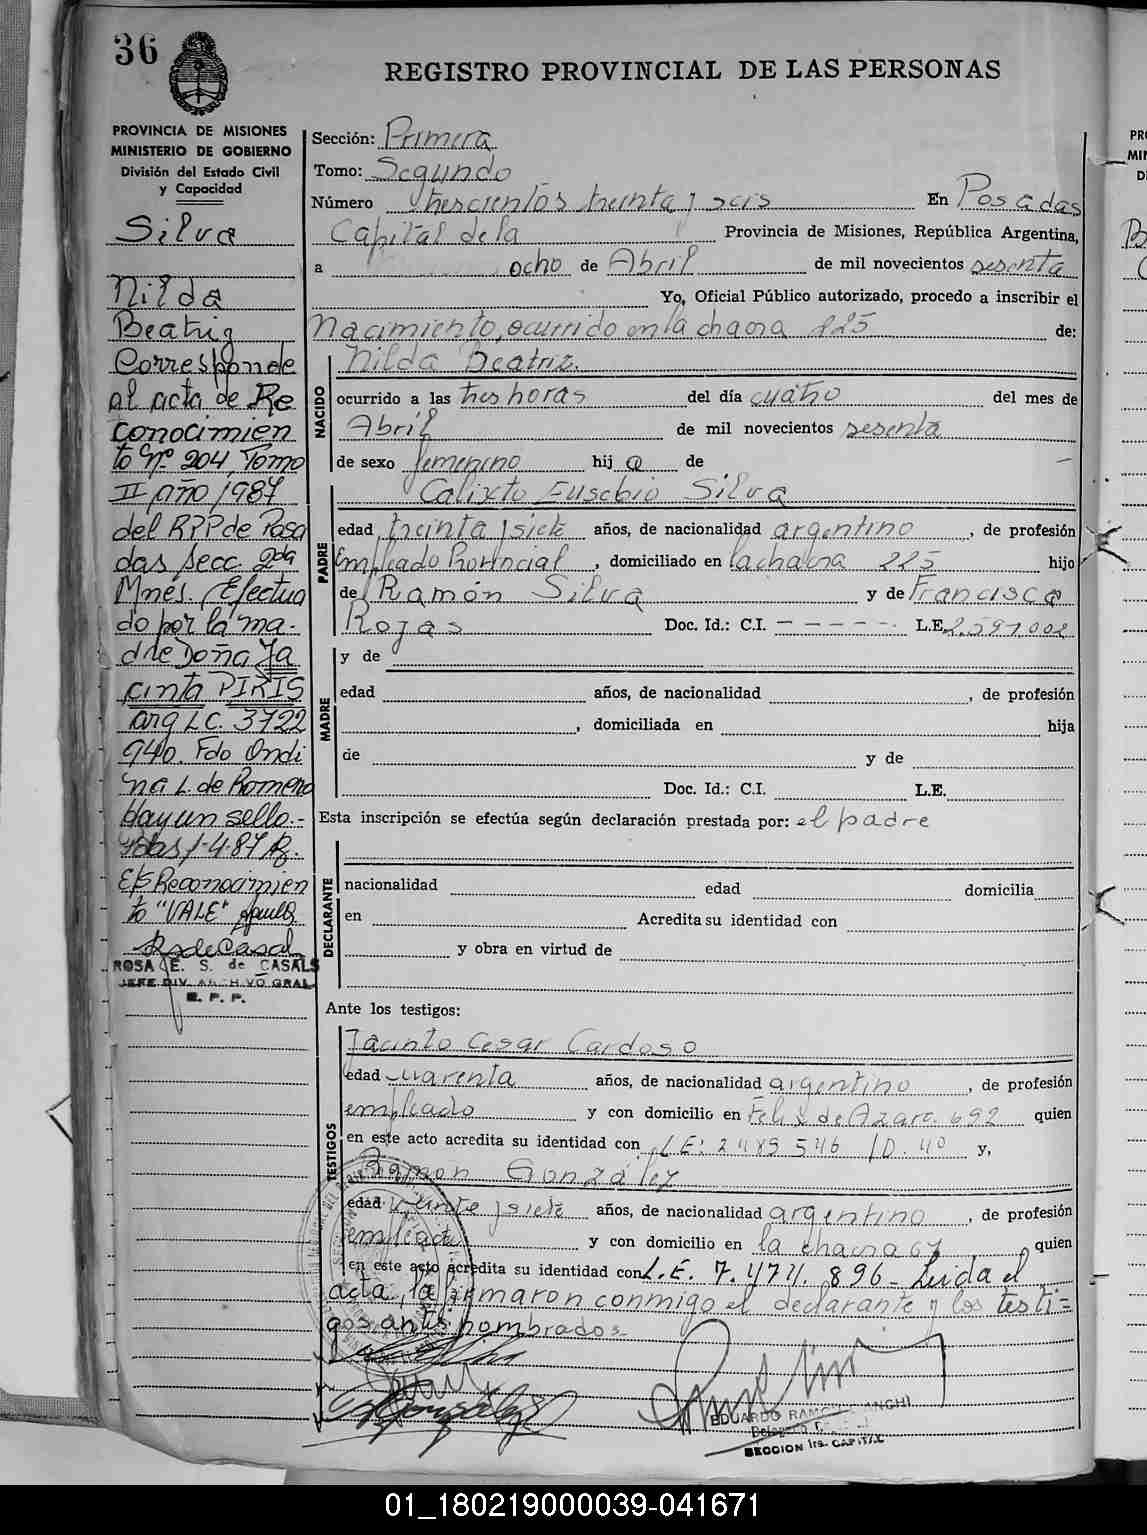 36
REGISTRO PROVINCIAL DE LAS PERSONAS
PROVINCIA DE MISIONES
MINISTERIO DE GOBIERNO
División del Estado Civil
y Capacidad
Silva
Nilda
Beatriz
Corresponde
al acta de Re
conocimien
to Nº 204, Tomo
II año 1987
del RPP de Posa
das, secc. 2da
Mnes. Efectua
do por la ma-
dre Doña Ja
cinta PIRIS
arg LC. 3722
940. Fdo Ondi
na L. de Romero
Hay un sello.-
Pdas 1-4-87
E/S Reconocimien
to "VALE"
R S de Casals
ROSA E. S. de CASALS
JEFE DIV. ARCHIVO GRAL.
R. P. P.
Sección: Primera
Tomo: Segundo
Número trescientos treinta y seis En Posadas
Capital de la Provincia de Misiones, República Argentina,
a ocho de Abril de mil novecientos sesenta
Yo, Oficial Público autorizado, procedo a inscribir el
Nacimiento, ocurrido en la chacra 225 de:
NACIDO
Nilda Beatriz.
ocurrido a las tres horas del día cuatro del mes de
Abril de mil novecientos sesenta
de sexo femenino hij a de
PADRE
Calixto Eusebio Silva
edad treinta y siete años, de nacionalidad argentino, de profesión
Empleado Provincial, domiciliado en la chacra 225 hijo
de Ramón Silva y de Francisca
Rojas Doc. Id.: C.I. - - - - - - L.E. 2.591002
MADRE
y de
edad años, de nacionalidad, de profesión
, domiciliada en hija
de y de
Doc. Id.: C.I. L.E.
Esta inscripción se efectúa según declaración prestada por: el padre
DECLARANTE
nacionalidad edad domicilia
en Acredita su identidad con
y obra en virtud de
Ante los testigos:
TESTIGOS
Jacinto Cesar Cardoso
edad cuarenta años, de nacionalidad argentino, de profesión
empleado y con domicilio en Felix de Azara 692 quien
en este acto acredita su identidad con L E: 2489546 D. 40 y,
Ramón González
edad veinte y siete años, de nacionalidad argentino, de profesión
empleado y con domicilio en la chacra 67 quien
en este acto acredita su identidad con L.E. 7.474.896- Leida el
acta, la firmaron conmigo el declarante y los testi=
gos antes nombrados-
González
EDUARDO RAMON
SECCION 1ra. CAPITAL
01_180219000039-041671